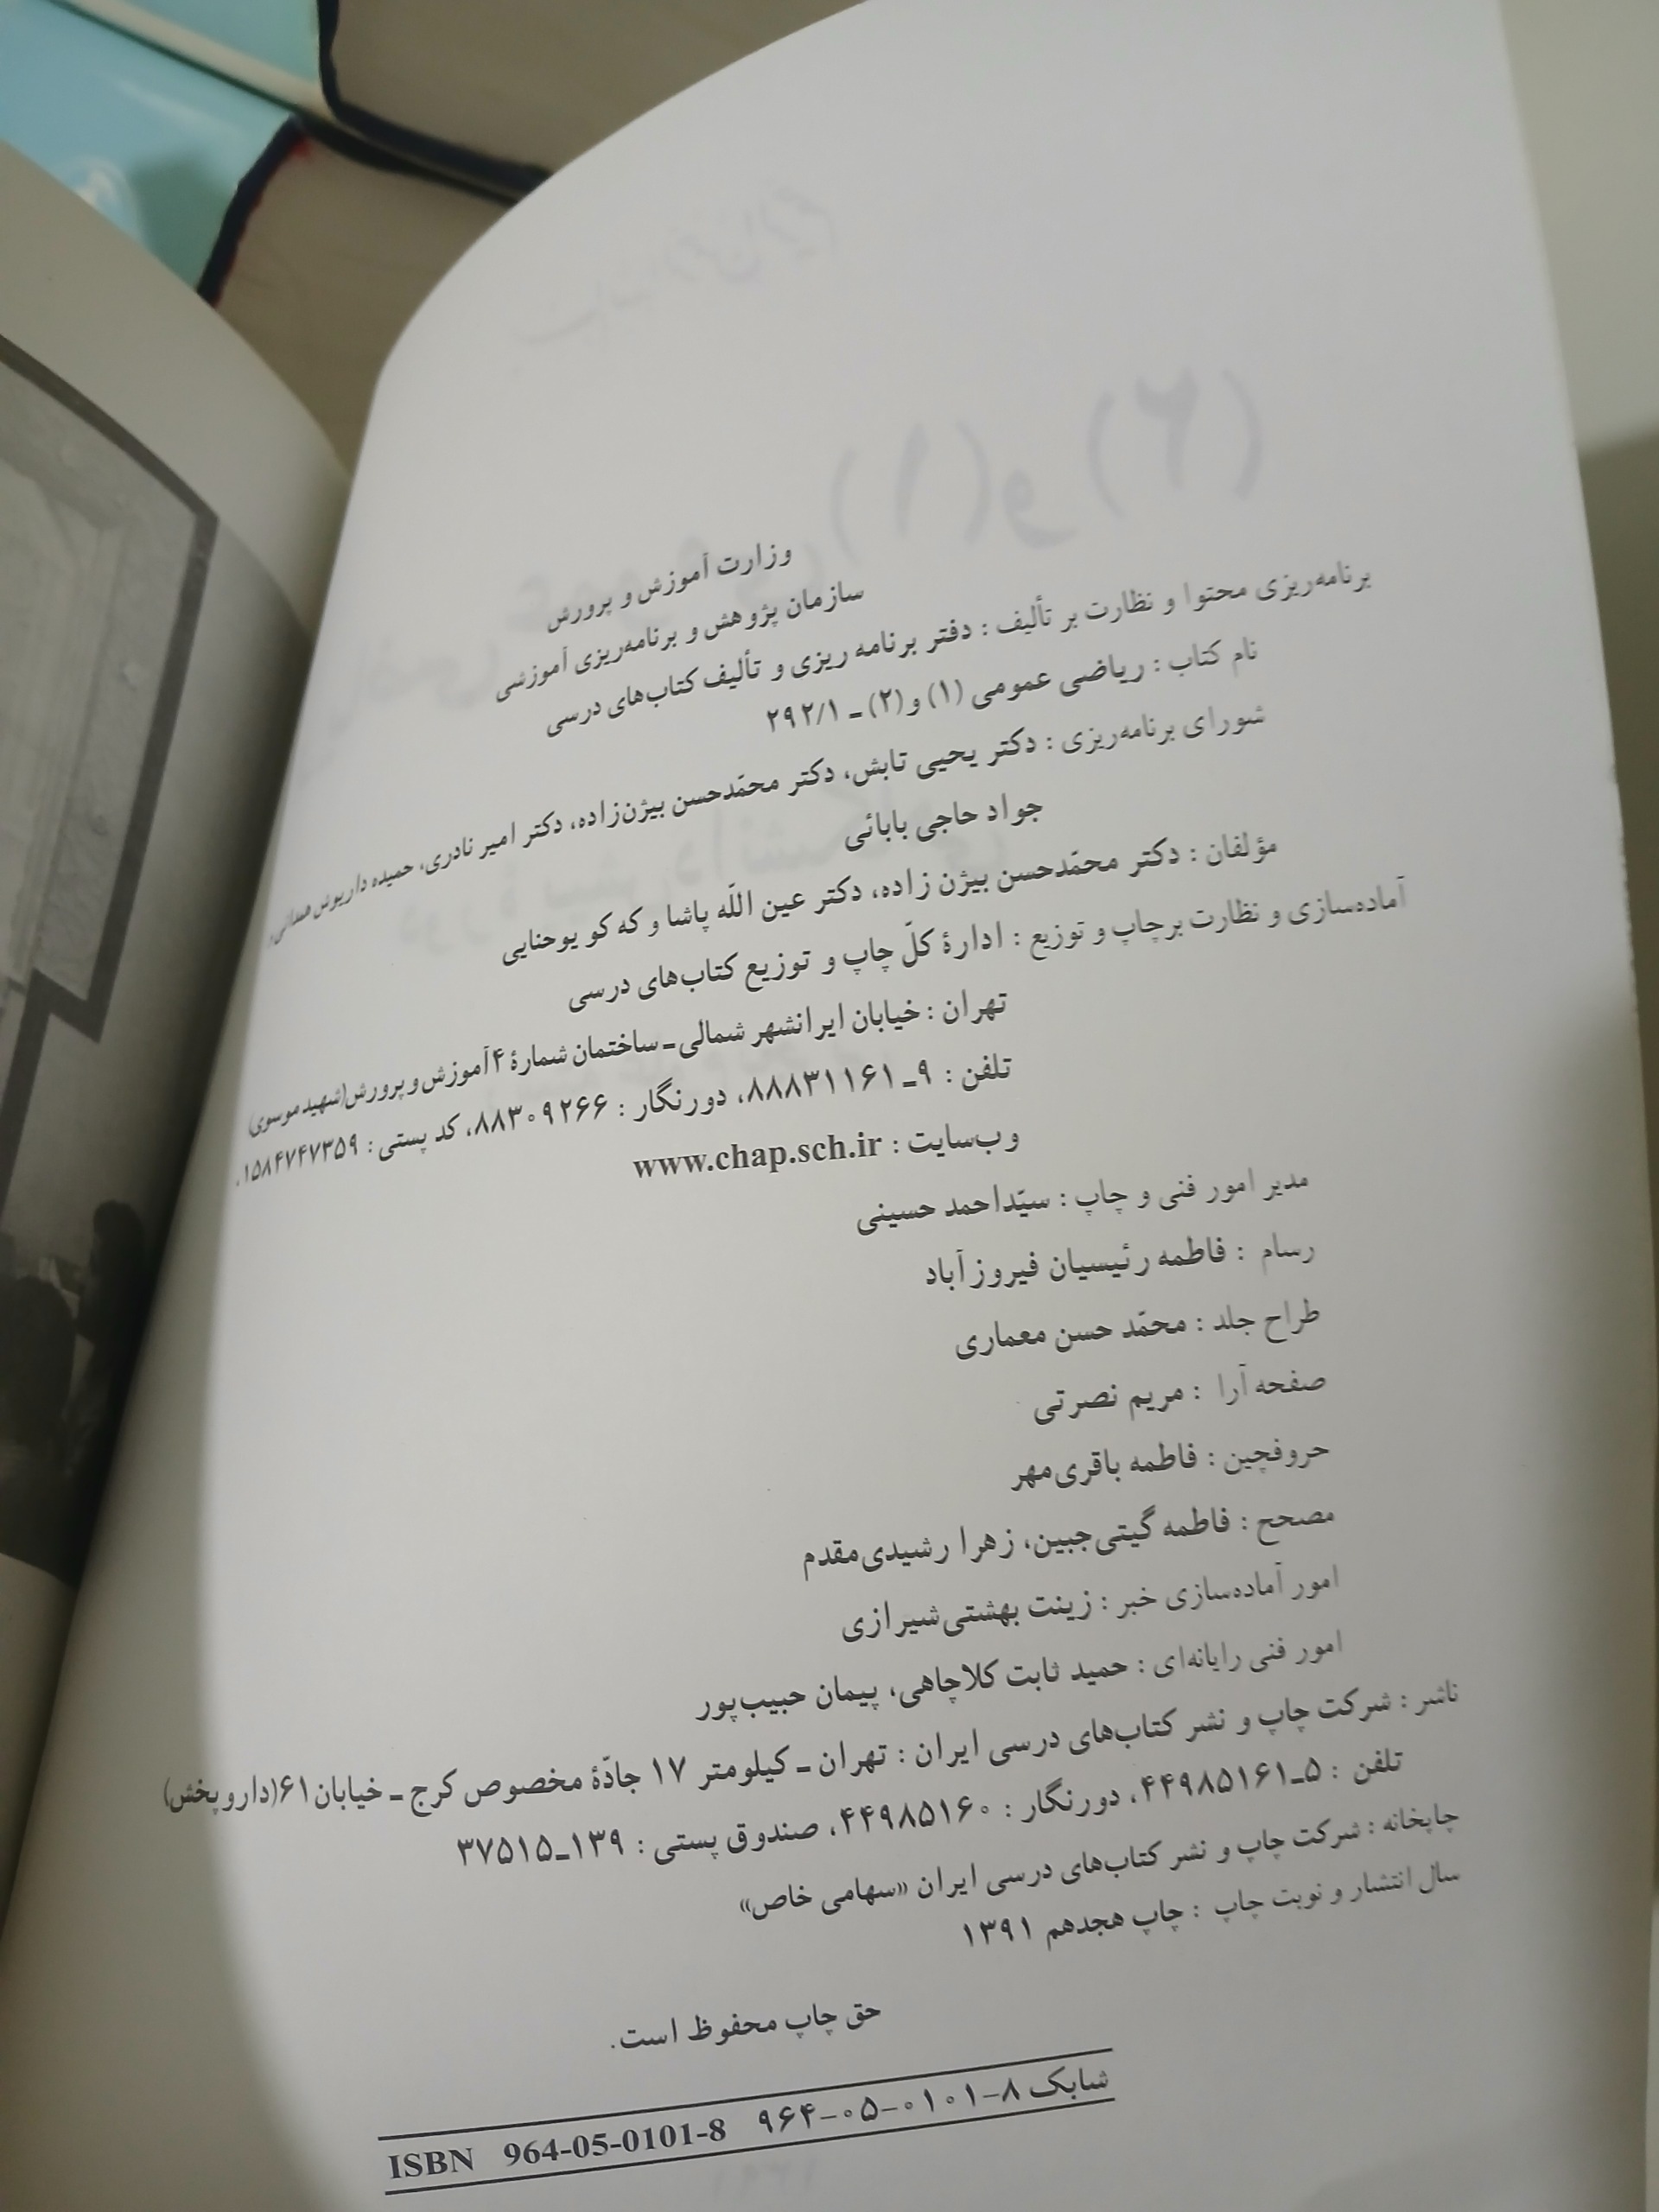 وزارت آموزش و پرورش
سازمان پژوهش و برنامه‌ریزی آموزشی
برنامه‌ریزی محتوا و نظارت بر تألیف : دفتر برنامه ریزی و تألیف کتاب‌های درسی
نام کتاب : ریاضی عمومی (۱) و (۲) ـ ۲۹۲/۱
شورای برنامه‌ریزی : دکتر یحیی تابش، دکتر محمّدحسن بیژن‌زاده، دکتر امیر نادری، حمیده داریوش همدانی،
جواد حاجی بابائی
مؤلفان : دکتر محمّدحسن بیژن زاده، دکتر عین اللّه پاشا و که کو یوحنایی
آماده‌سازی و نظارت بر چاپ و توزیع : ادارهٔ کلّ چاپ و توزیع کتاب‌های درسی
تهران : خیابان ایرانشهر شمالی ـ ساختمان شمارهٔ ۴ آموزش و پرورش (شهید موسوی)
تلفن : ۹ـ۸۸۸۳۱۱۶۱، دورنگار : ۸۸۳۰۹۲۶۶، کد پستی : ۱۵۸۴۷۴۷۳۵۹،
وب‌سایت : www.chap.sch.ir
مدیر امور فنی و چاپ : سیّداحمد حسینی
رسام : فاطمه رئیسیان فیروزآباد
طراح جلد : محمّد حسن معماری
صفحه آرا : مریم نصرتی
حروفچین : فاطمه باقری‌مهر
مصحح : فاطمه گیتی‌جبین، زهرا رشیدی‌مقدم
امور آماده‌سازی خبر : زینت بهشتی‌شیرازی
امور فنی رایانه‌ای : حمید ثابت کلاچاهی، پیمان حبیب‌پور
ناشر : شرکت چاپ و نشر کتاب‌های درسی ایران : تهران ـ کیلومتر ۱۷ جادّهٔ مخصوص کرج ـ خیابان ۶۱ (داروپخش)
تلفن : ۵ـ۴۴۹۸۵۱۶۱، دورنگار : ۴۴۹۸۵۱۶۰، صندوق پستی : ۱۳۹ـ۳۷۵۱۵
چاپخانه : شرکت چاپ و نشر کتاب‌های درسی ایران «سهامی خاص»
سال انتشار و نوبت چاپ : چاپ هجدهم ۱۳۹۱
حق چاپ محفوظ است.
شابک ۸–۰۱۰۱–۰۵–۹۶۴ ISBN 964-05-0101-8